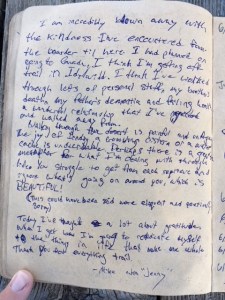 I am incredibly blown away with
the kindness I've encountered from
the boarder til here I had planned on
going to Canada, I think I'm getting off
trail in Idylwild. I think I've walked
through lots of personal stuff, my brothers
death, my father's dementia and feeling
a wonderful relationship that I've
and walked away from.
Walking through the desert is painful and
the joy of finding a trickling cistern or a water
cache is undeniable. Perhaps there is a great
metaphor to what I'm dealing with through
like you struggle to get from each
ignore what's going on around you, which is
BEAUTIFUL!
(this could have been more eloquent and poetical,
sorry)
Today I've thought a lot about gratitude
what I get and I'm going to dedicate myself
to the thing in life that make me whole
Thank You for everything trail
- Mike aka "Jenny"